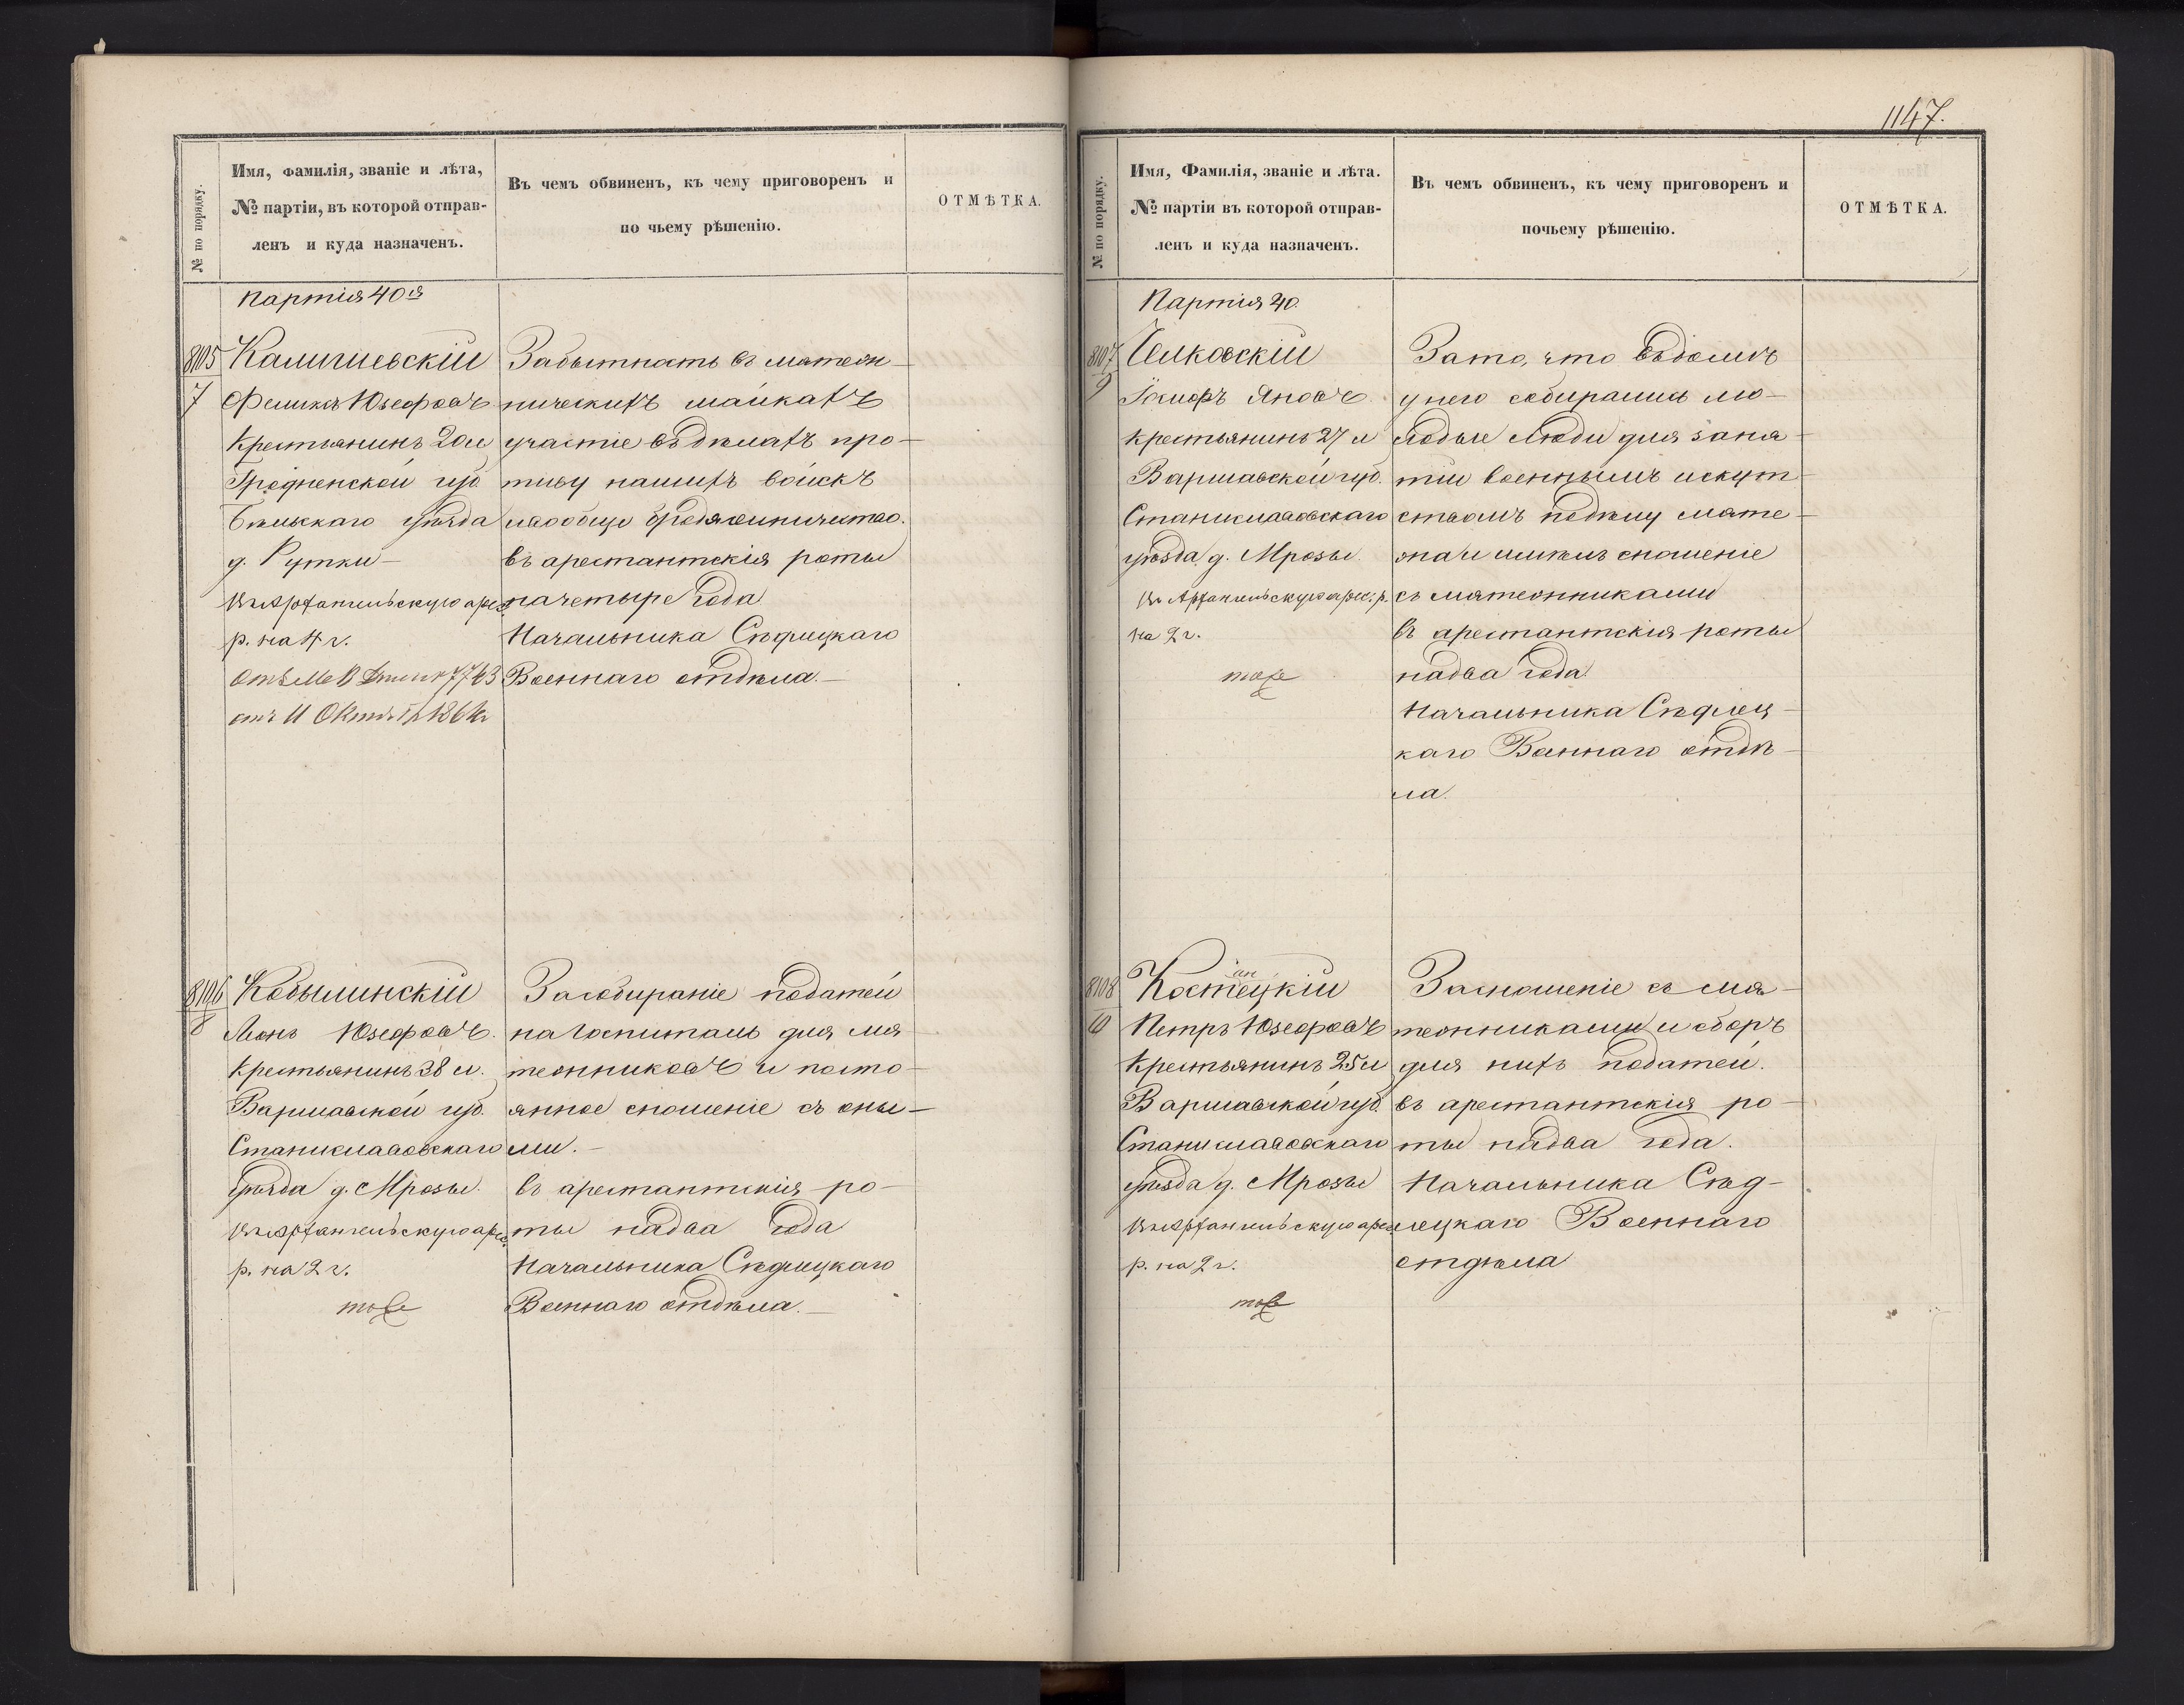 1147.
№ по порядку.
Имя, фамилія, званіе и лѣта,
№ партіи, въ которой отправ-
ленъ и куда назначенъ.
Въ чемъ обвиненъ, къ чему приговоренъ и
по чьему рѣшенію.
ОТМѢТКА.
Партія 40я
8105
7
Феликсъ Юзефовъ
Крестьянинъ 20 л
Гродненской губ.
Бѣльскаго уѣзда
д. Рутки
Въ Архангельскую арес.
р. на 4 г.
7743
отъ 11 Октября 1864 г.
За бытность въ мятеж-
ническихъ шайкахъ
участіе въ дѣлахъ про-
тиву нашихъ войскъ
и вообще бродяжничество.
въ арестантскія роты
на четыре года
Начальника Сѣдлецкаго
Военнаго отдѣла.
8106
8
Кобылинскій
Леонъ Юзефовъ.
Крестьянинъ 38 л.
Варшавской губ.
Станиславовскаго
уѣзда д. Мрозы.
Въ Архангельскую арес.
р. на 2 г.
тоже
За собираніе податей
на госпиталь для мя-
тежниковъ и посто-
янное сношеніе съ оны-
ми.-
въ арестантскія ро-
ты на два года
Начальника Сѣдлецкаго
Военнаго отдѣла.
№ по порядку.
Имя, Фамилія, званіе и лѣта.
№ партіи въ которой отправ-
ленъ и куда назначенъ.
Въ чемъ обвиненъ, къ чему приговоренъ и
почьему рѣшенію.
ОТМѢТКА.
Партія 40.
8107
9
Яновъ
крестьянинъ 27 л
Варшавской губ.
Станиславовскаго
уѣзда д. Мрозы.
Въ Архангельскую арес. р.
на 2 г.
тоже
За то, что въ домѣ
у него собирались мо-
лодые люди для заня-
тій военнымъ искут
ствомъ мяте-
жа и имѣлъ сношеніе
съ мятежниками
въ арестантскія роты
на два года
Начальника Сѣдлец-
каго Военнаго отдѣ-
ла.
8108
10
ан
Костецкій
Петръ Юзефовъ
Крестьянинъ 25 л
Варшавской губ.
Станиславовскаго
уѣзда д. Мрозы
Въ Архангельскую арес.
р. на 2 г.
тоже
За сношеніе съ мя-
тежниками и сборъ
для нихъ податей.
въ арестантскія ро-
ты на два года.
Начальника Сѣд-
лецкаго Военнаго
отдѣла